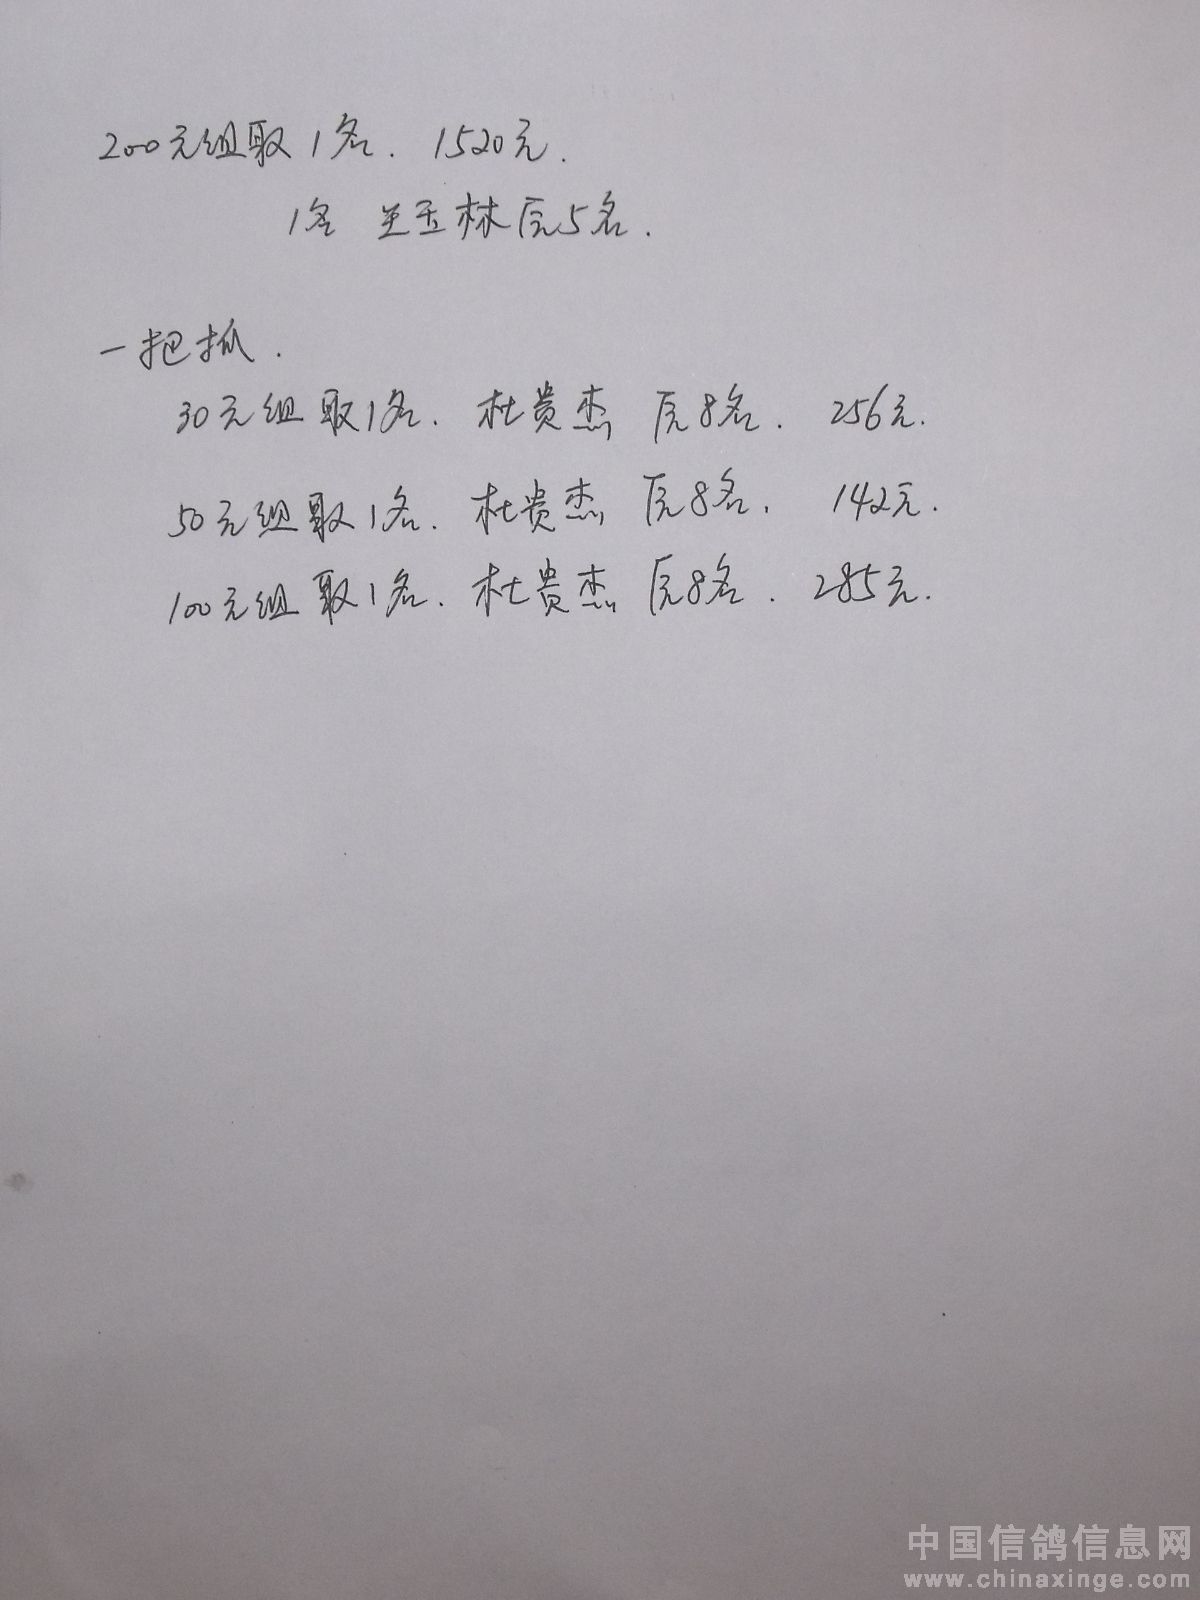 200元组取1名. 1520元.
1名 王玉林原5名.
一把抓.
30元组取1名. 杜贵杰 原8名. 256元.
50元组取1名. 杜贵杰 原8名. 142元.
100元组取1名. 杜贵杰 原8名. 285元.
中国信鸽信息网
www.chinaxinge.com